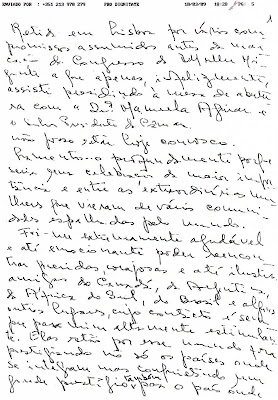 ENVIADO POR : +351 213 978 279 PRO DIGNITATE 18/03/09 18:28 PG: 5
1
Retida em Lisboa por vários com-
promissos assumidos antes da mar-
cação do Congresso da Mulher Mi-
grante a que apenas, infelizmente,
assisti presidindo à mesa de abertu-
ra com a Drª Manuela Aguiar e
o Senhor Presidente da Câmara
não posso estar hoje convosco.
Lamento-o profundamente porque
seria uma celebração da maior impor-
tância e entre as extraordinárias mu-
lheres que vieram de várias comuni-
dades espalhadas pelo mundo.
Foi-me extremamente agradável
e até emocionante poder reencon-
trar queridas, corajosas e até ilustres
amigas do Canadá, da Argentina,
da África do Sul, do Brasil e alguns
outros lugares, cujo contacto é sem-
pre para mim altamente estimulan-
te. Elas estão por esse mundo fora
prestigiando não só os países onde
se integram mas conferindo um
grande prestígio também para o país onde